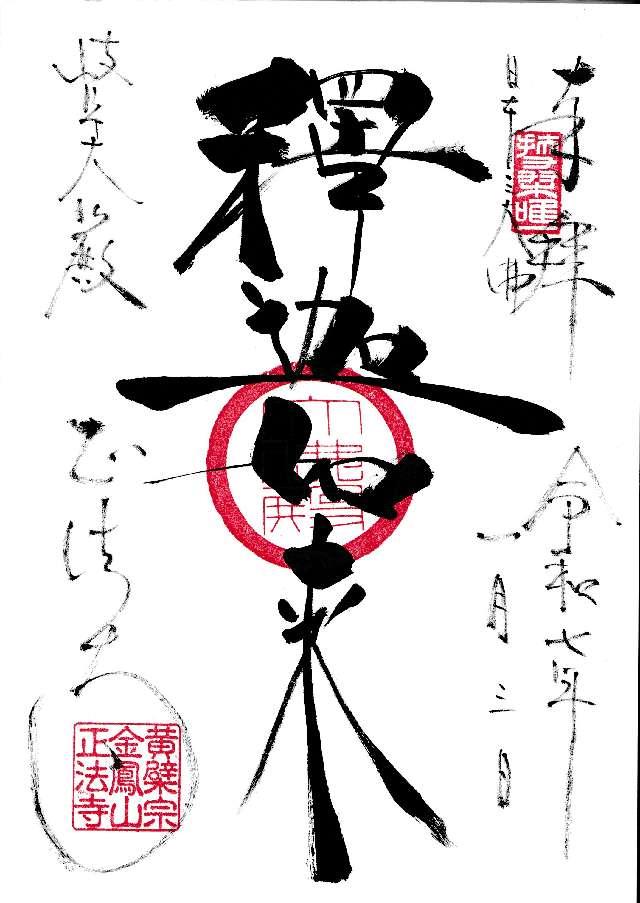 奉拝
日本三大仏
令和七年
一月三日
釋迦如来
岐阜大仏
正法寺
黄檗宗
金鳳山
正法寺